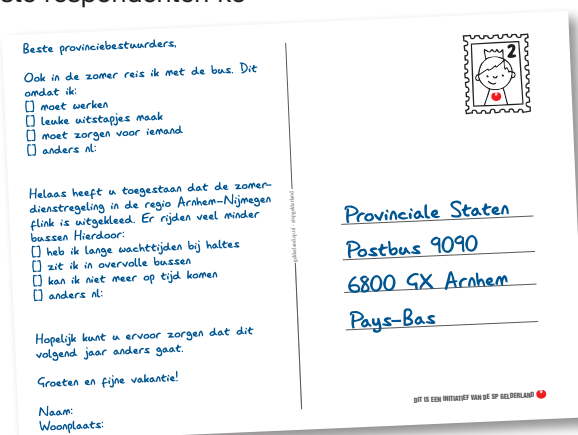 Beste provinciebestuurders,
Ook in de zomer reis ik met de bus. Dit
omdat ik:
[] moet werken
[] leuke uitstapjes maak
[] moet zorgen voor iemand
[] anders nl:
Helaas heeft u toegestaan dat de zomer-
dienstregeling in de regio Arnhem-Nijmegen
flink is uitgekleed. Er rijden veel minder
bussen Hierdoor:
[] heb ik lange wachttijden bij haltes
[] zit ik in overvolle bussen
[] kan ik niet meer op tijd komen
[] anders nl:
Hopelijk kunt u ervoor zorgen dat dit
volgend jaar anders gaat.
Groeten en fijne vakantie!
Naam:
Woonplaats:
2
Provinciale Staten
Postbus 9090
6800 GX Arnhem
Pays-Bas
DIT IS EEN INITIATIEF VAN DE SP GELDERLAND